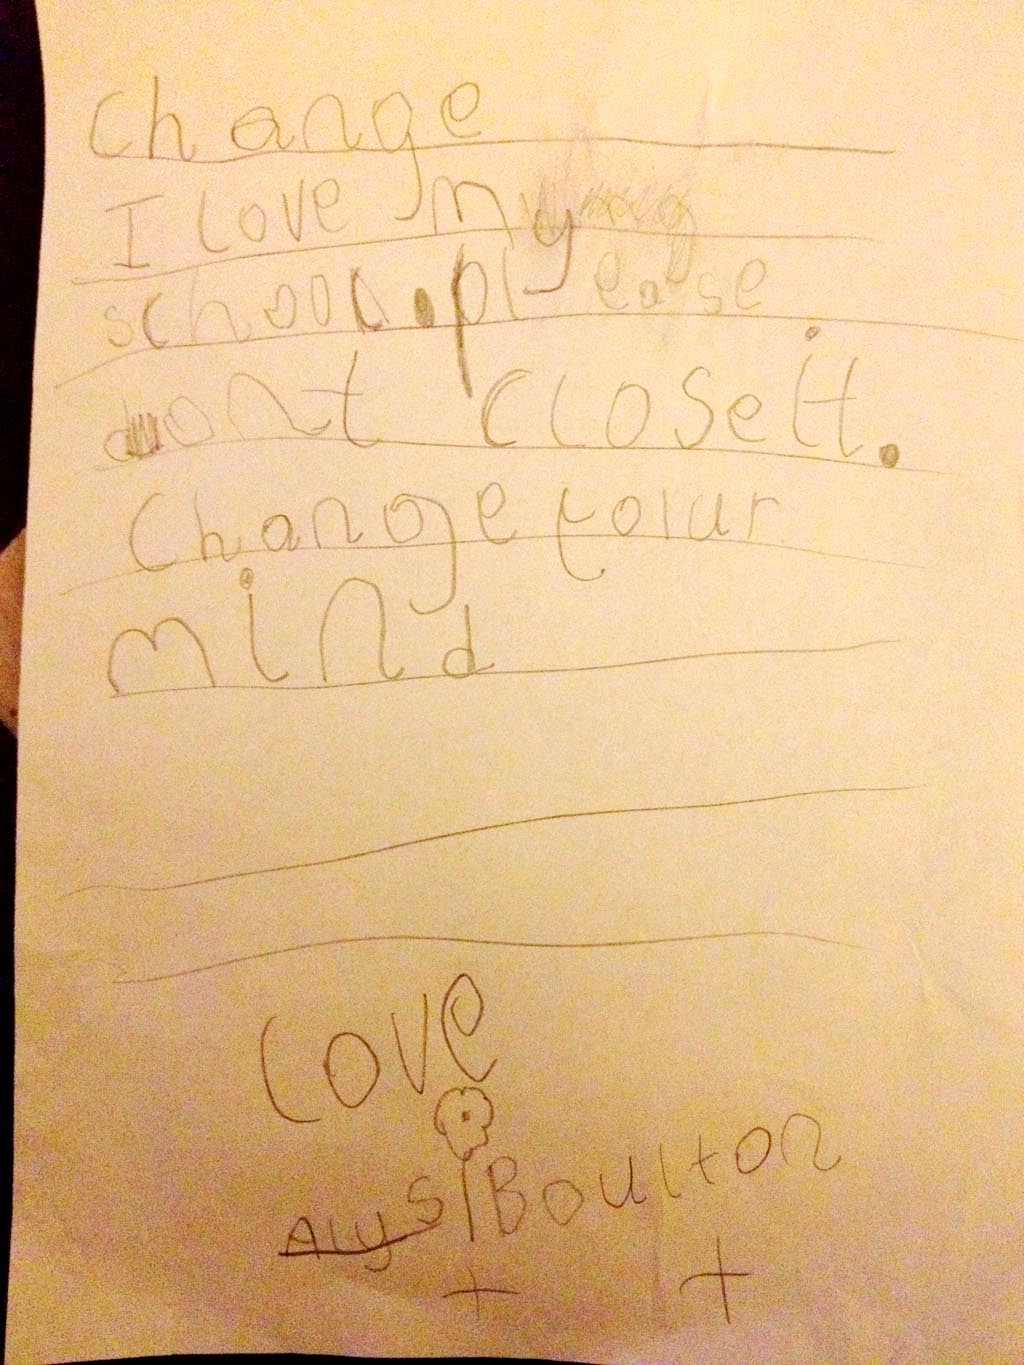 Change
I love my
school. please
dont close it.
Change yolur
mind
Love
Alys Boulton